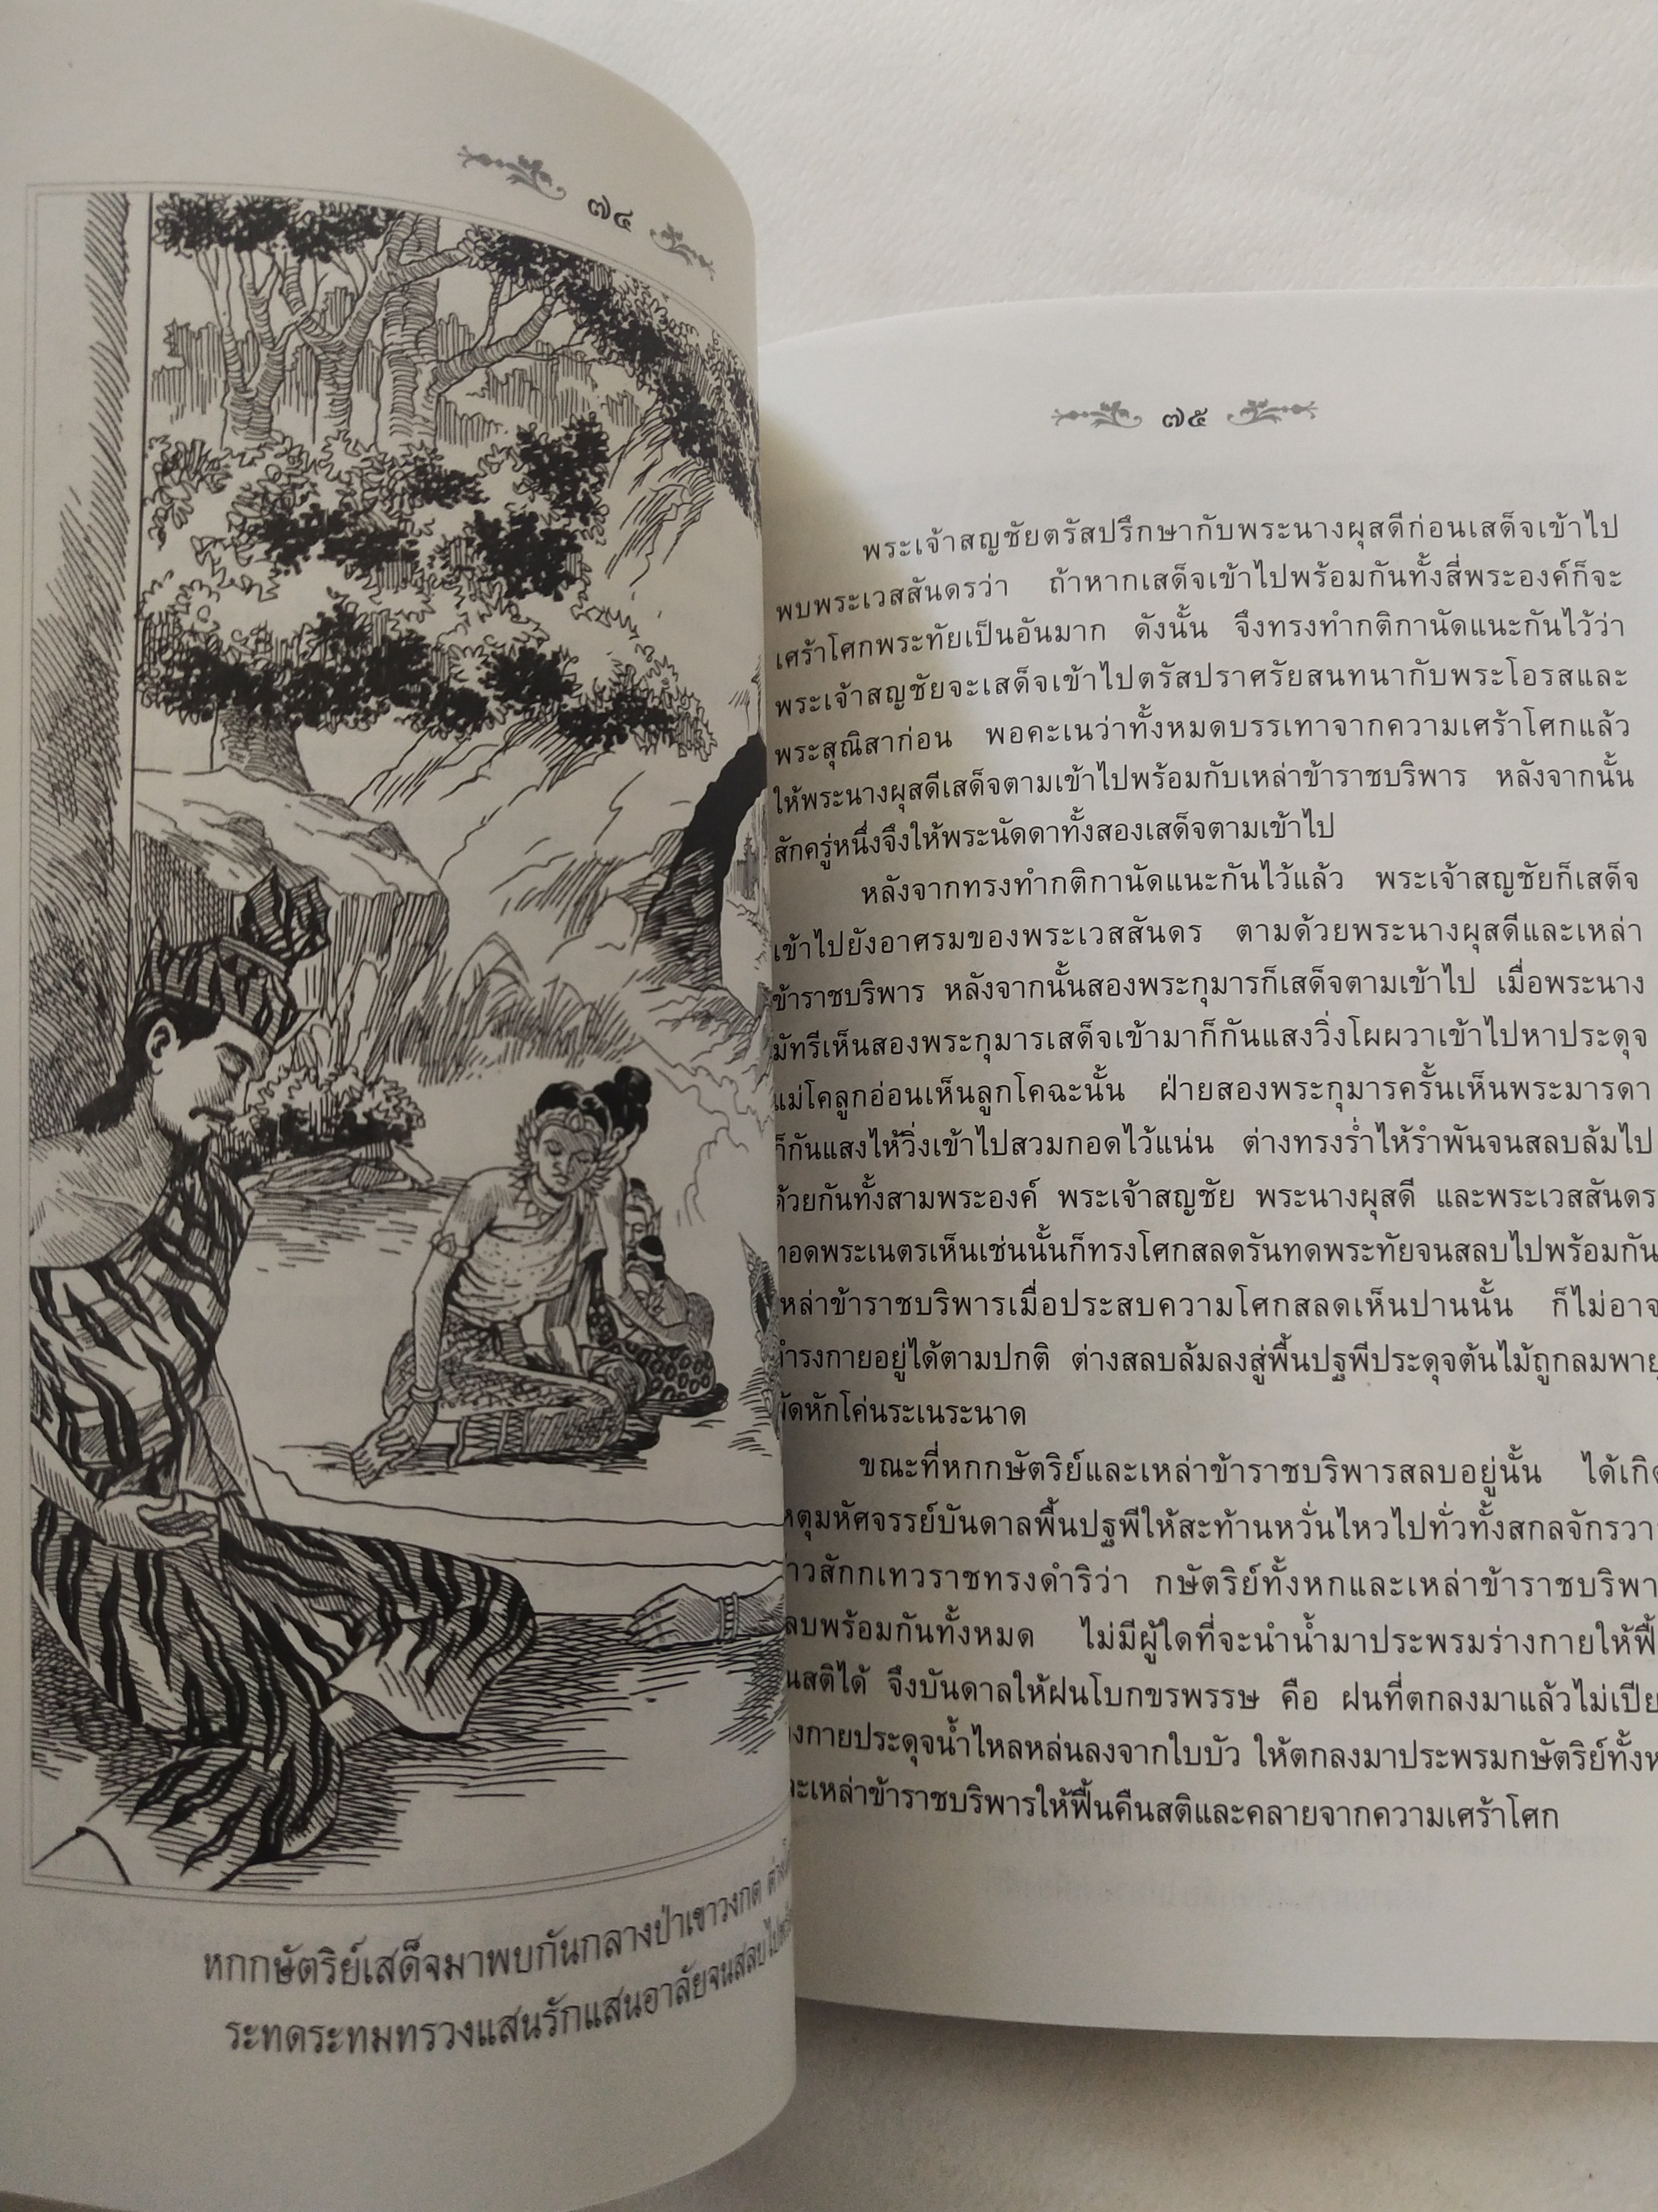 ๗๔
หกกษัตริย์เสด็จมาพบกันกลางป่าเขาวงกต
ระทดระทมทรวงแสนรักแสนอาลัยจนสลบไป
๗๕
พระเจ้าสญชัยตรัสปรึกษากับพระนางผุสดีก่อนเสด็จเข้าไป
พบพระเวสสันดรว่า ถ้าหากเสด็จเข้าไปพร้อมกันทั้งสี่พระองค์ก็จะ
เศร้าโศกพระทัยเป็นอันมาก ดังนั้น จึงทรงทำกติกานัดแนะกันไว้ว่า
พระเจ้าสญชัยจะเสด็จเข้าไปตรัสปราศรัยสนทนากับพระโอรสและ
พระสุณิสาก่อน พอคะเนว่าทั้งหมดบรรเทาจากความเศร้าโศกแล้ว
ให้พระนางผุสดีเสด็จตามเข้าไปพร้อมกับเหล่าข้าราชบริพาร หลังจากนั้น
สักครู่หนึ่งจึงให้พระนัดดาทั้งสองเสด็จตามเข้าไป
หลังจากทรงทำกติกานัดแนะกันไว้แล้ว พระเจ้าสญชัยก็เสด็จ
เข้าไปยังอาศรมของพระเวสสันดร ตามด้วยพระนางผุสดีและเหล่า
ข้าราชบริพาร หลังจากนั้นสองพระกุมารก็เสด็จตามเข้าไป เมื่อพระนาง
มัทรีเห็นสองพระกุมารเสด็จเข้ามาก็กันแสงวิ่งโผผวาเข้าไปหาประดุจ
แม่โคลูกอ่อนเห็นลูกโคฉะนั้น ฝ่ายสองพระกุมารครั้นเห็นพระมารดา
ก็กันแสงไห้วิ่งเข้าไปสวมกอดไว้แน่น ต่างทรงร่ำไห้รำพันจนสลบล้มไป
ด้วยกันทั้งสามพระองค์ พระเจ้าสญชัย พระนางผุสดี และพระเวสสันดร
ทอดพระเนตรเห็นเช่นนั้นก็ทรงโศกสลดรันทดพระทัยจนสลบไปพร้อมกัน
เหล่าข้าราชบริพารเมื่อประสบความโศกสลดเห็นปานนั้น ก็ไม่อาจ
ดำรงกายอยู่ได้ตามปกติ ต่างสลบล้มลงสู่พื้นปฐพีประดุจต้นไม้ถูกลมพายุ
พัดหักโค่นระเนระนาด
ขณะที่หกกษัตริย์และเหล่าข้าราชบริพารสลบอยู่นั้น ได้เกิด
เหตุมหัศจรรย์บันดาลพื้นปฐพีให้สะท้านหวั่นไหวไปทั่วทั้งสกลจักรวาล
ท้าวสักกเทวราชทรงดำริว่า กษัตริย์ทั้งหกและเหล่าข้าราชบริพาร
สลบพร้อมกันทั้งหมด ไม่มีผู้ใดที่จะนำน้ำมาประพรมร่างกายให้ฟื้น
คืนสติได้ จึงบันดาลให้ฝนโบกขรพรรษ คือ ฝนที่ตกลงมาแล้วไม่เปียก
ร่างกายประดุจน้ำไหลหล่นลงจากใบบัว ให้ตกลงมาประพรมกษัตริย์ทั้งหก
และเหล่าข้าราชบริพารให้ฟื้นคืนสติและคลายจากความเศร้าโศก